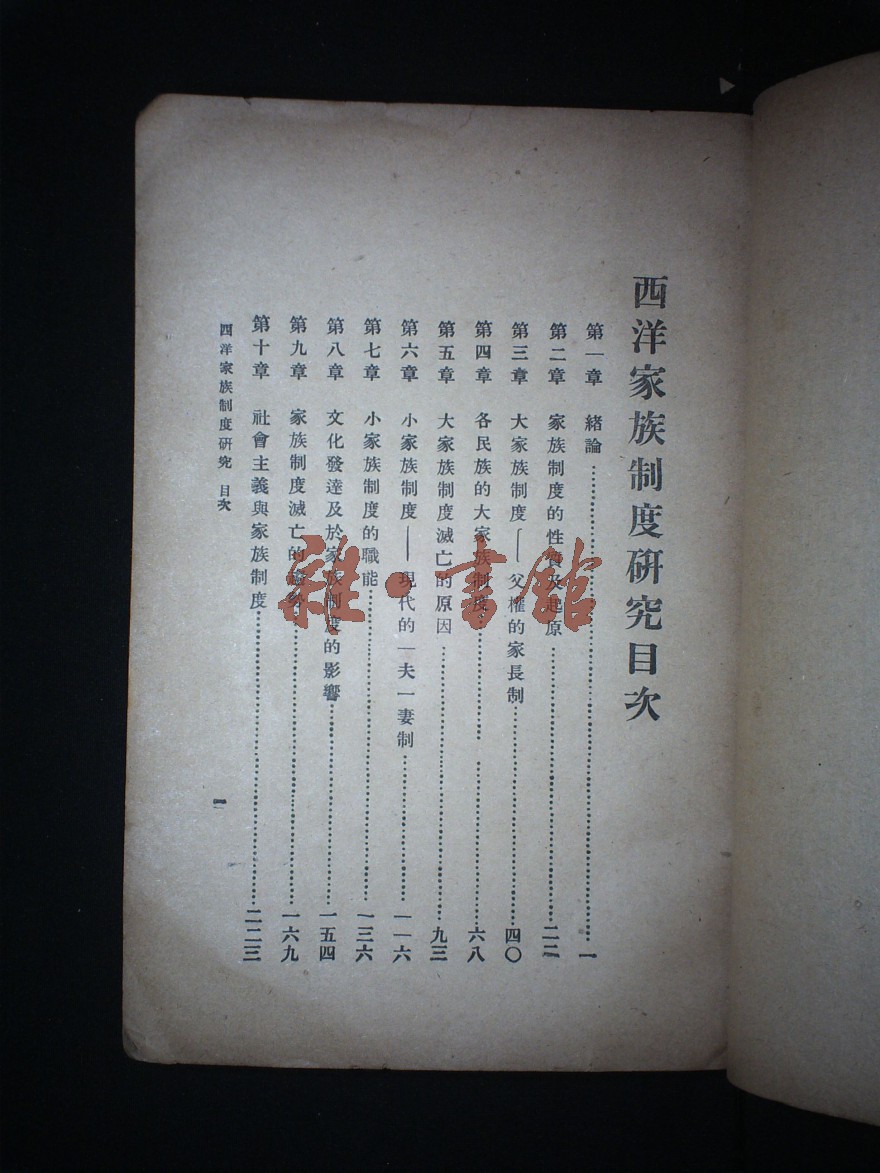 西洋家族制度研究目次
第一章 緒論……一
第二章 家族制度的性質及起原……二二
第三章 大家族制度——父權的家長制……四〇
第四章 各民族的大家族制度……六八
第五章 大家族制度滅亡的原因……九三
第六章 小家族制度——現代的一夫一妻制……一一六
第七章 小家族制度的職能……一三六
第八章 文化發達及於家族制度的影響……一五四
第九章 家族制度滅亡的……一六九
第十章 社會主義與家族制度……二二三
西洋家族制度研究 目次
一
雜·書館